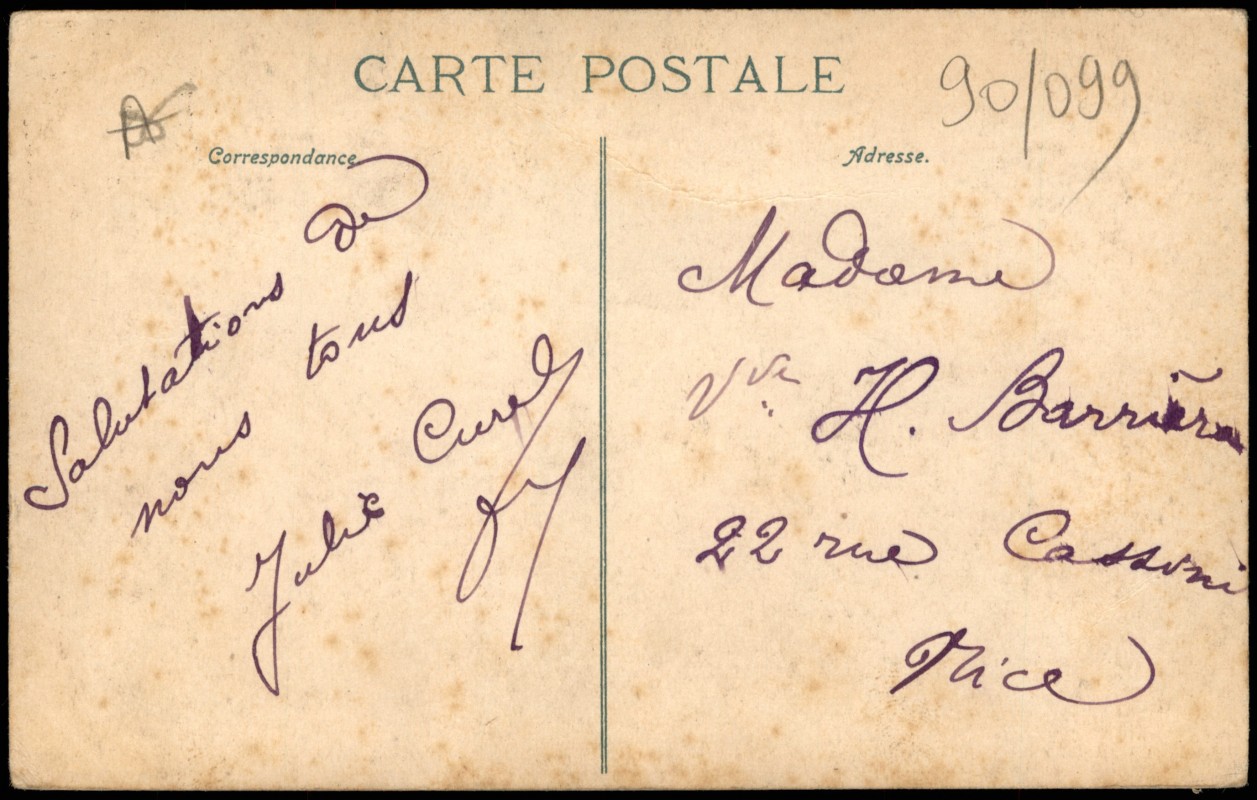 CARTE POSTALE
90/099
Correspondance
Adresse.
Salutations de
nous tous
Julie Curel
Madame
Vve H. Barrière
22 rue Cassini
Nice